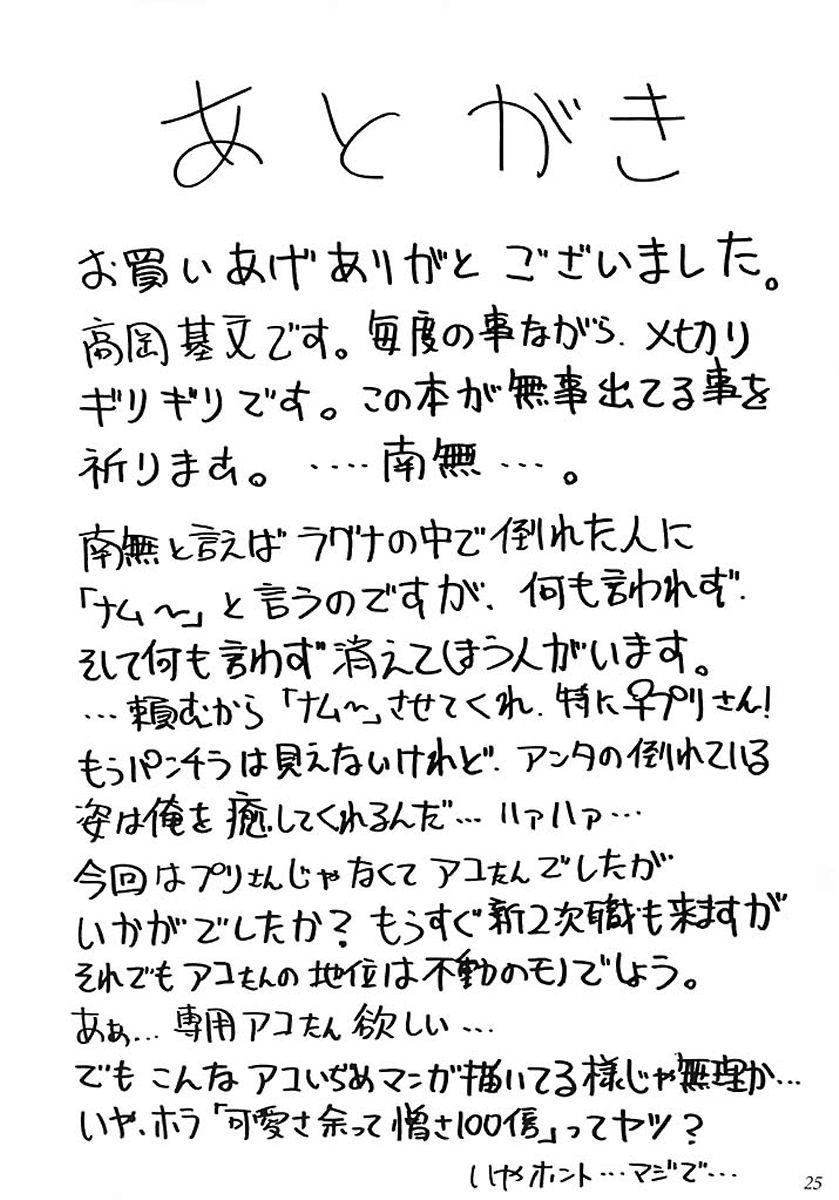 あとがき
お買いあげありがとございました。
高岡基文です。毎度の事ながら、〆切り
ギリギリです。この本が無事出てる事を
祈りまあ。‥‥南無…。
南無と言えばラグナの中で倒れた人に
「ナム～」と言うのですが、何も言われず、
そして何も言わず消えてしまう人がいます。
…頼むから「ナム～」させてくれ、特に♀プリさん!
もうパンチラは見えないけれど、アンタの倒れている
姿は俺を癒してくれるんだ…ハァハァ…
今回はプリさんじゃなくてアコたんでしたが
いかがでしたか?もうすぐ新2次職も来ますが
それでもアコたんの地位は不動のモノでしょう。
あぁ…専用アコたん欲しい…
でもこんなアコいぢめマンガ描いてる様じゃ無理か…
いや、ホラ「可愛さ余って憎さ100倍」ってヤツ?
いやホント…マジで…
25